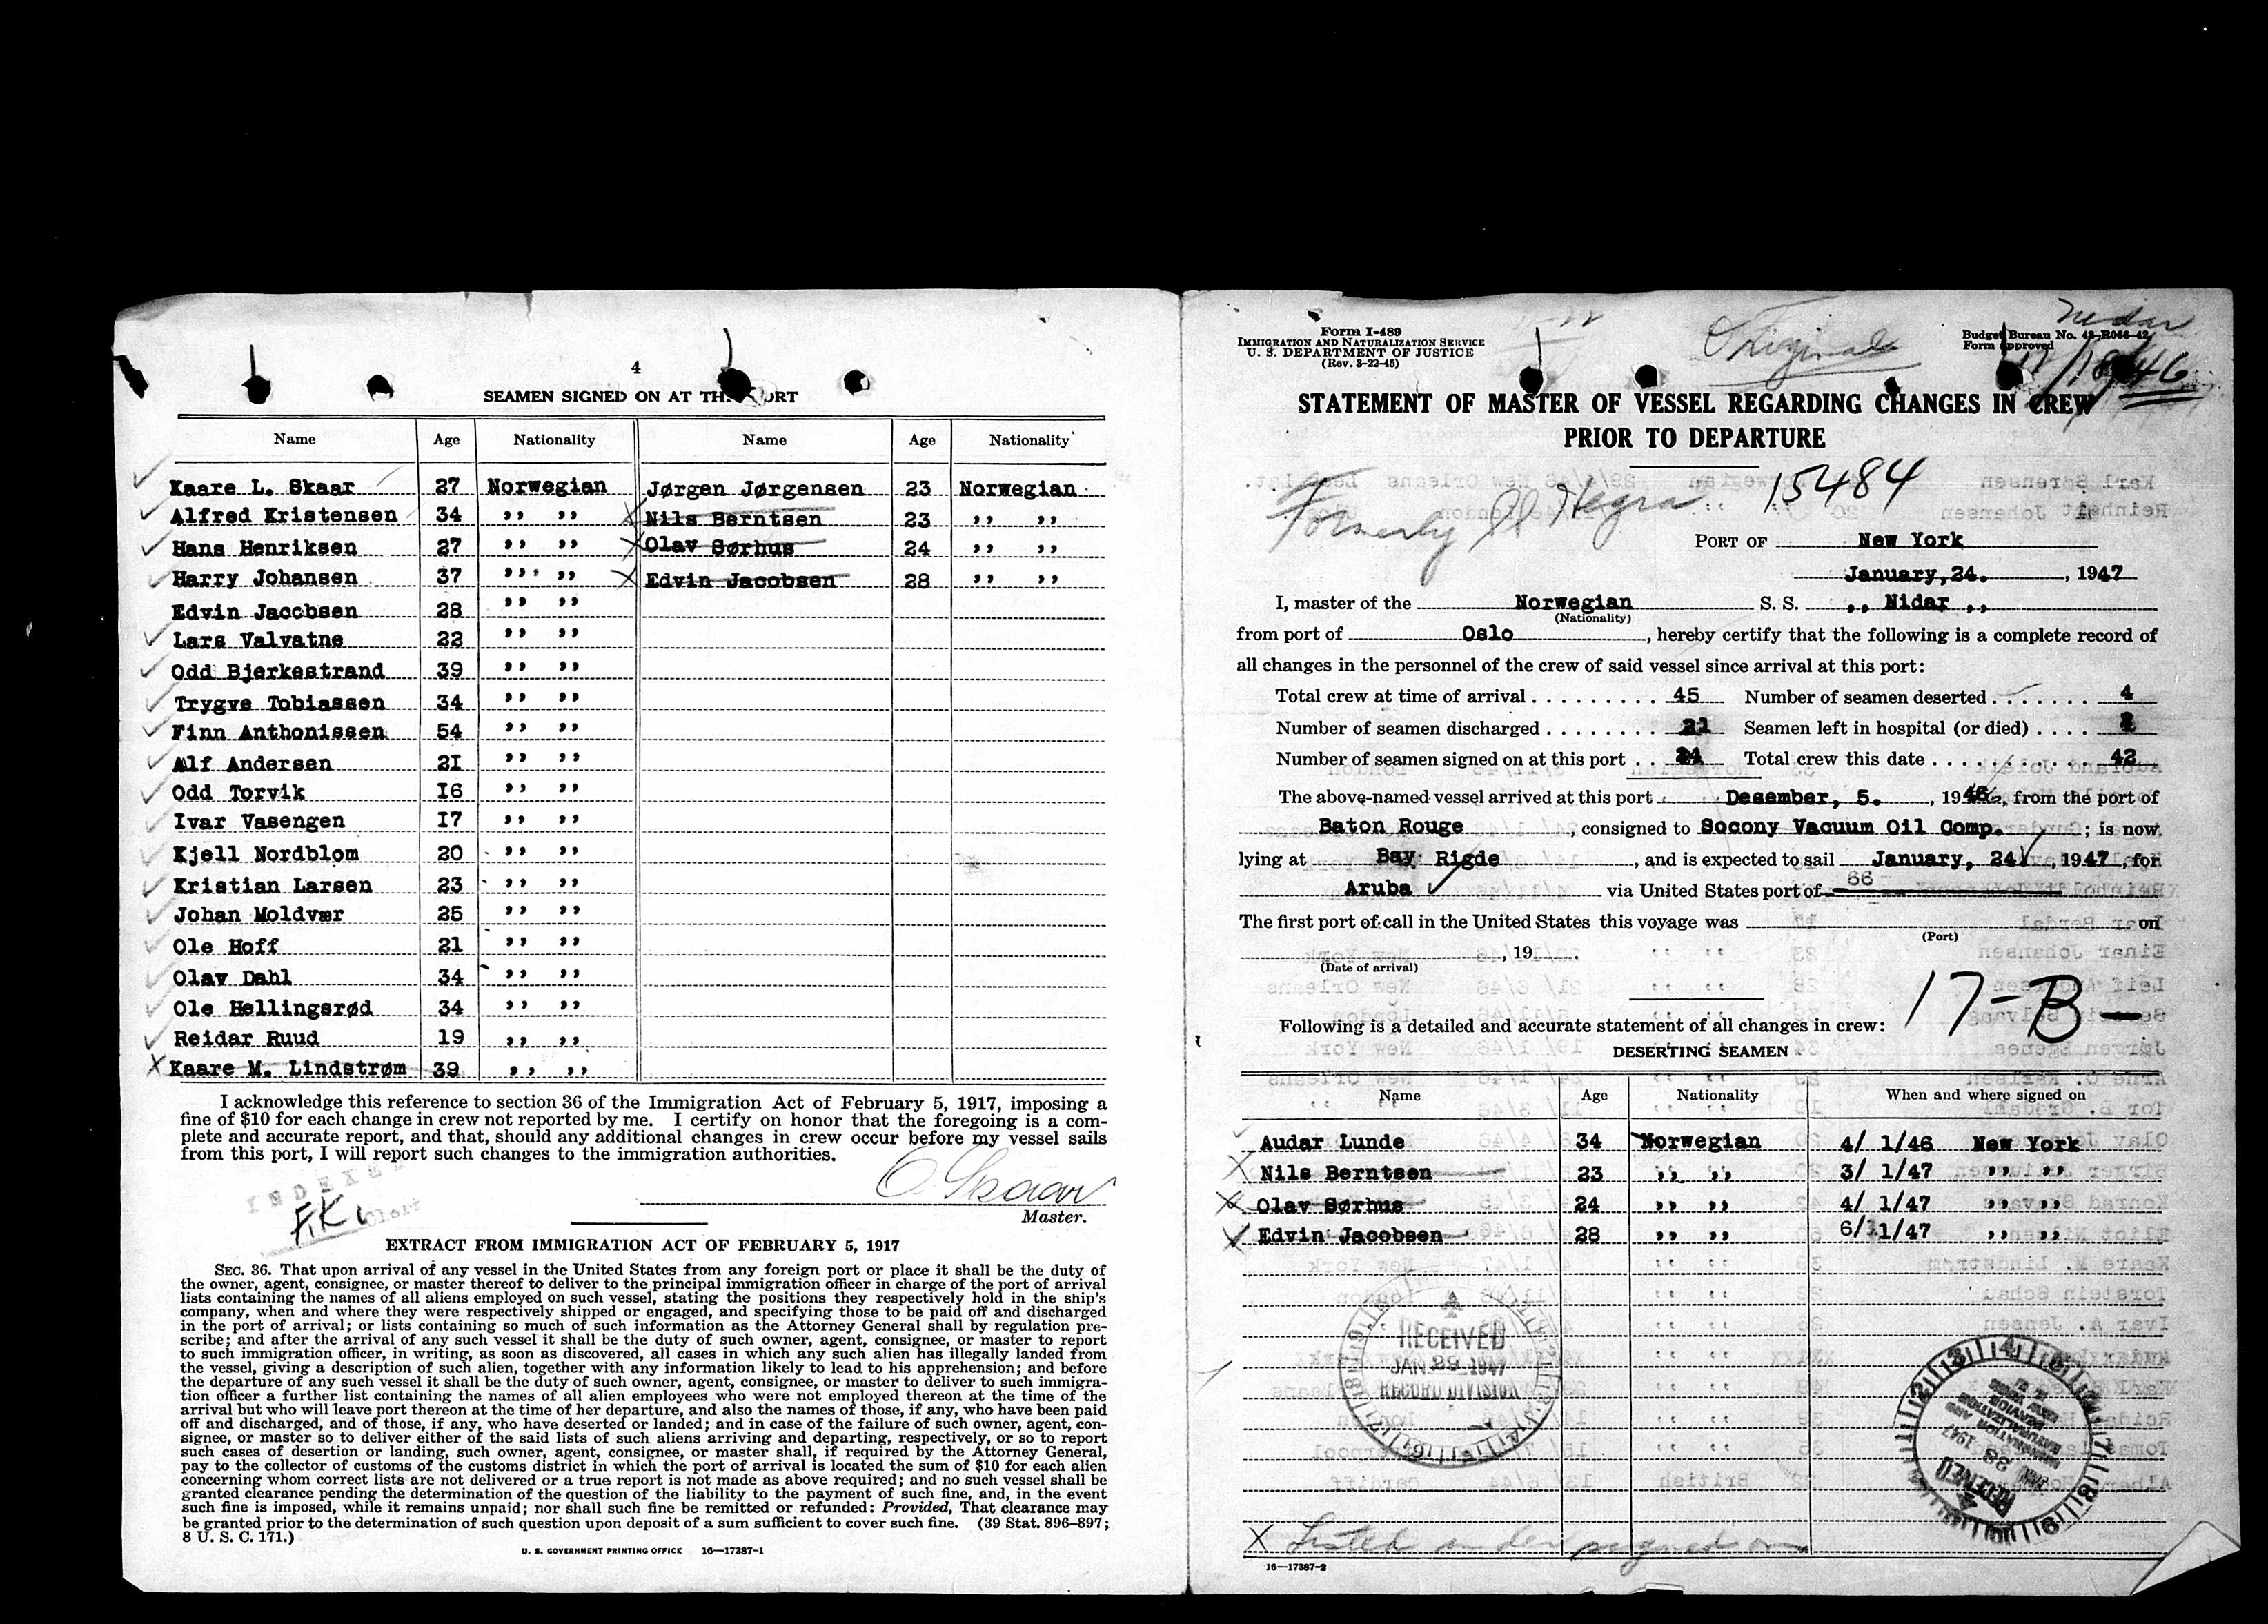 4
SEAMEN SIGNED ON AT THIS PORT
Name Age Nationality Name Age Nationality
Kaare L. Skaar 27 Norwegian Jørgen Jørgensen 23 Norwegian
Alfred Kristensen 34 ,, ,, X Nils Berntsen 23 ,, ,,
Hans Henriksen 27 ,, ,, X Olav Sørhus 24 ,, ,,
Harry Johansen 37 ,, ,, X Edvin Jacobsen 28 ,, ,,
Edvin Jacobsen 28 ,, ,,
Lars Valvatne 22 ,, ,,
Odd Bjerkestrand 39 ,, ,,
Trygve Tobiassen 34 ,, ,,
Finn Anthonissen 54 ,, ,,
Alf Andersen 2I ,, ,,
Odd Torvik I6 ,, ,,
Ivar Vasengen I7 ,, ,,
Kjell Nordblom 20 ,, ,,
Kristian Larsen 23 ,, ,,
Johan Moldvær 25 ,, ,,
Ole Hoff 21 ,, ,,
Olav Dahl 34 ,, ,,
Ole Hellingsrød 34 ,, ,,
Reidar Ruud 19 ,, ,,
X Kaare M. Lindstrøm 39 ,, ,,
I acknowledge this reference to section 36 of the Immigration Act of February 5, 1917, imposing a
fine of $10 for each change in crew not reported by me. I certify on honor that the foregoing is a com-
plete and accurate report, and that, should any additional changes in crew occur before my vessel sails
from this port, I will report such changes to the immigration authorities.
INDEXED
F.K. Clerk
O. Skaar
Master.
EXTRACT FROM IMMIGRATION ACT OF FEBRUARY 5, 1917
SEC. 36. That upon arrival of any vessel in the United States from any foreign port or place it shall be the duty of
the owner, agent, consignee, or master thereof to deliver to the principal immigration officer in charge of the port of arrival
lists containing the names of all aliens employed on such vessel, stating the positions they respectively hold in the ship's
company, when and where they were respectively shipped or engaged, and specifying those to be paid off and discharged
in the port of arrival; or lists containing so much of such information as the Attorney General shall by regulation pre-
scribe; and after the arrival of any such vessel it shall be the duty of such owner, agent, consignee, or master to report
to such immigration officer, in writing, as soon as discovered, all cases in which any such alien has illegally landed from
the vessel, giving a description of such alien, together with any information likely to lead to his apprehension; and before
the departure of any such vessel it shall be the duty of such owner, agent, consignee, or master to deliver to such immigra-
tion officer a further list containing the names of all alien employees who were not employed thereon at the time of the
arrival but who will leave port thereon at the time of her departure, and also the names of those, if any, who have been paid
off and discharged, and of those, if any, who have deserted or landed; and in case of the failure of such owner, agent, con-
signee, or master so to deliver either of the said lists of such aliens arriving and departing, respectively, or so to report
such cases of desertion or landing, such owner, agent, consignee, or master shall, if required by the Attorney General,
pay to the collector of customs of the customs district in which the port of arrival is located the sum of $10 for each alien
concerning whom correct lists are not delivered or a true report is not made as above required; and no such vessel shall be
granted clearance pending the determination of the question of the liability to the payment of such fine, and, in the event
such fine is imposed, while it remains unpaid; nor shall such fine be remitted or refunded: Provided, That clearance may
be granted prior to the determination of such question upon deposit of a sum sufficient to cover such fine. (39 Stat. 896–897;
8 U. S. C. 171.)
U. S. GOVERNMENT PRINTING OFFICE 16—17387-1
Form I-489
IMMIGRATION AND NATURALIZATION SERVICE
U. S. DEPARTMENT OF JUSTICE
(Rev. 3-22-45)
Original
Nidar
Budget Bureau No. 43-R066-42
Form approved
STATEMENT OF MASTER OF VESSEL REGARDING CHANGES IN CREW
PRIOR TO DEPARTURE
Formerly Hegra 15484
PORT OF New York
January,24. , 1947
I, master of the Norwegian S. S. ,, Nidar ,,
(Nationality)
from port of Oslo , hereby certify that the following is a complete record of
all changes in the personnel of the crew of said vessel since arrival at this port:
Total crew at time of arrival . . . . . . . . . 45 Number of seamen deserted . . . . . . . 4
Number of seamen discharged . . . . . . . . 21 Seamen left in hospital (or died) . . . .
Number of seamen signed on at this port . . 24 Total crew this date . . . . . . . . . 42
The above-named vessel arrived at this port Desember, 5. , 1946, from the port of
Baton Rouge , consigned to Socony Vacuum Oil Comp. ; is now
lying at Bay Rigde , and is expected to sail January, 24 , 1947 , for
Aruba via United States port of 66
The first port of call in the United States this voyage was on
(Port)
, 19 .
(Date of arrival)
17-B-
Following is a detailed and accurate statement of all changes in crew:
DESERTING SEAMEN
Name Age Nationality When and where signed on
Audar Lunde 34 Norwegian 4/ 1/46 New York
X Nils Berntsen 23 ,, ,, 3/ 1/47 ,, ,,
X Olav Sørhus 24 ,, ,, 4/ 1/47 ,, ,,
X Edvin Jacobsen 28 ,, ,, 6/ 1/47 ,, ,,
RECEIVED
JAN 29 1947
RECORD DIVISION
RECEIVED
JAN 28 1947
IMMIGRATION AND
NATURALIZATION
SERVICE
NEW YORK
X Listed under signed on
16—17387-2